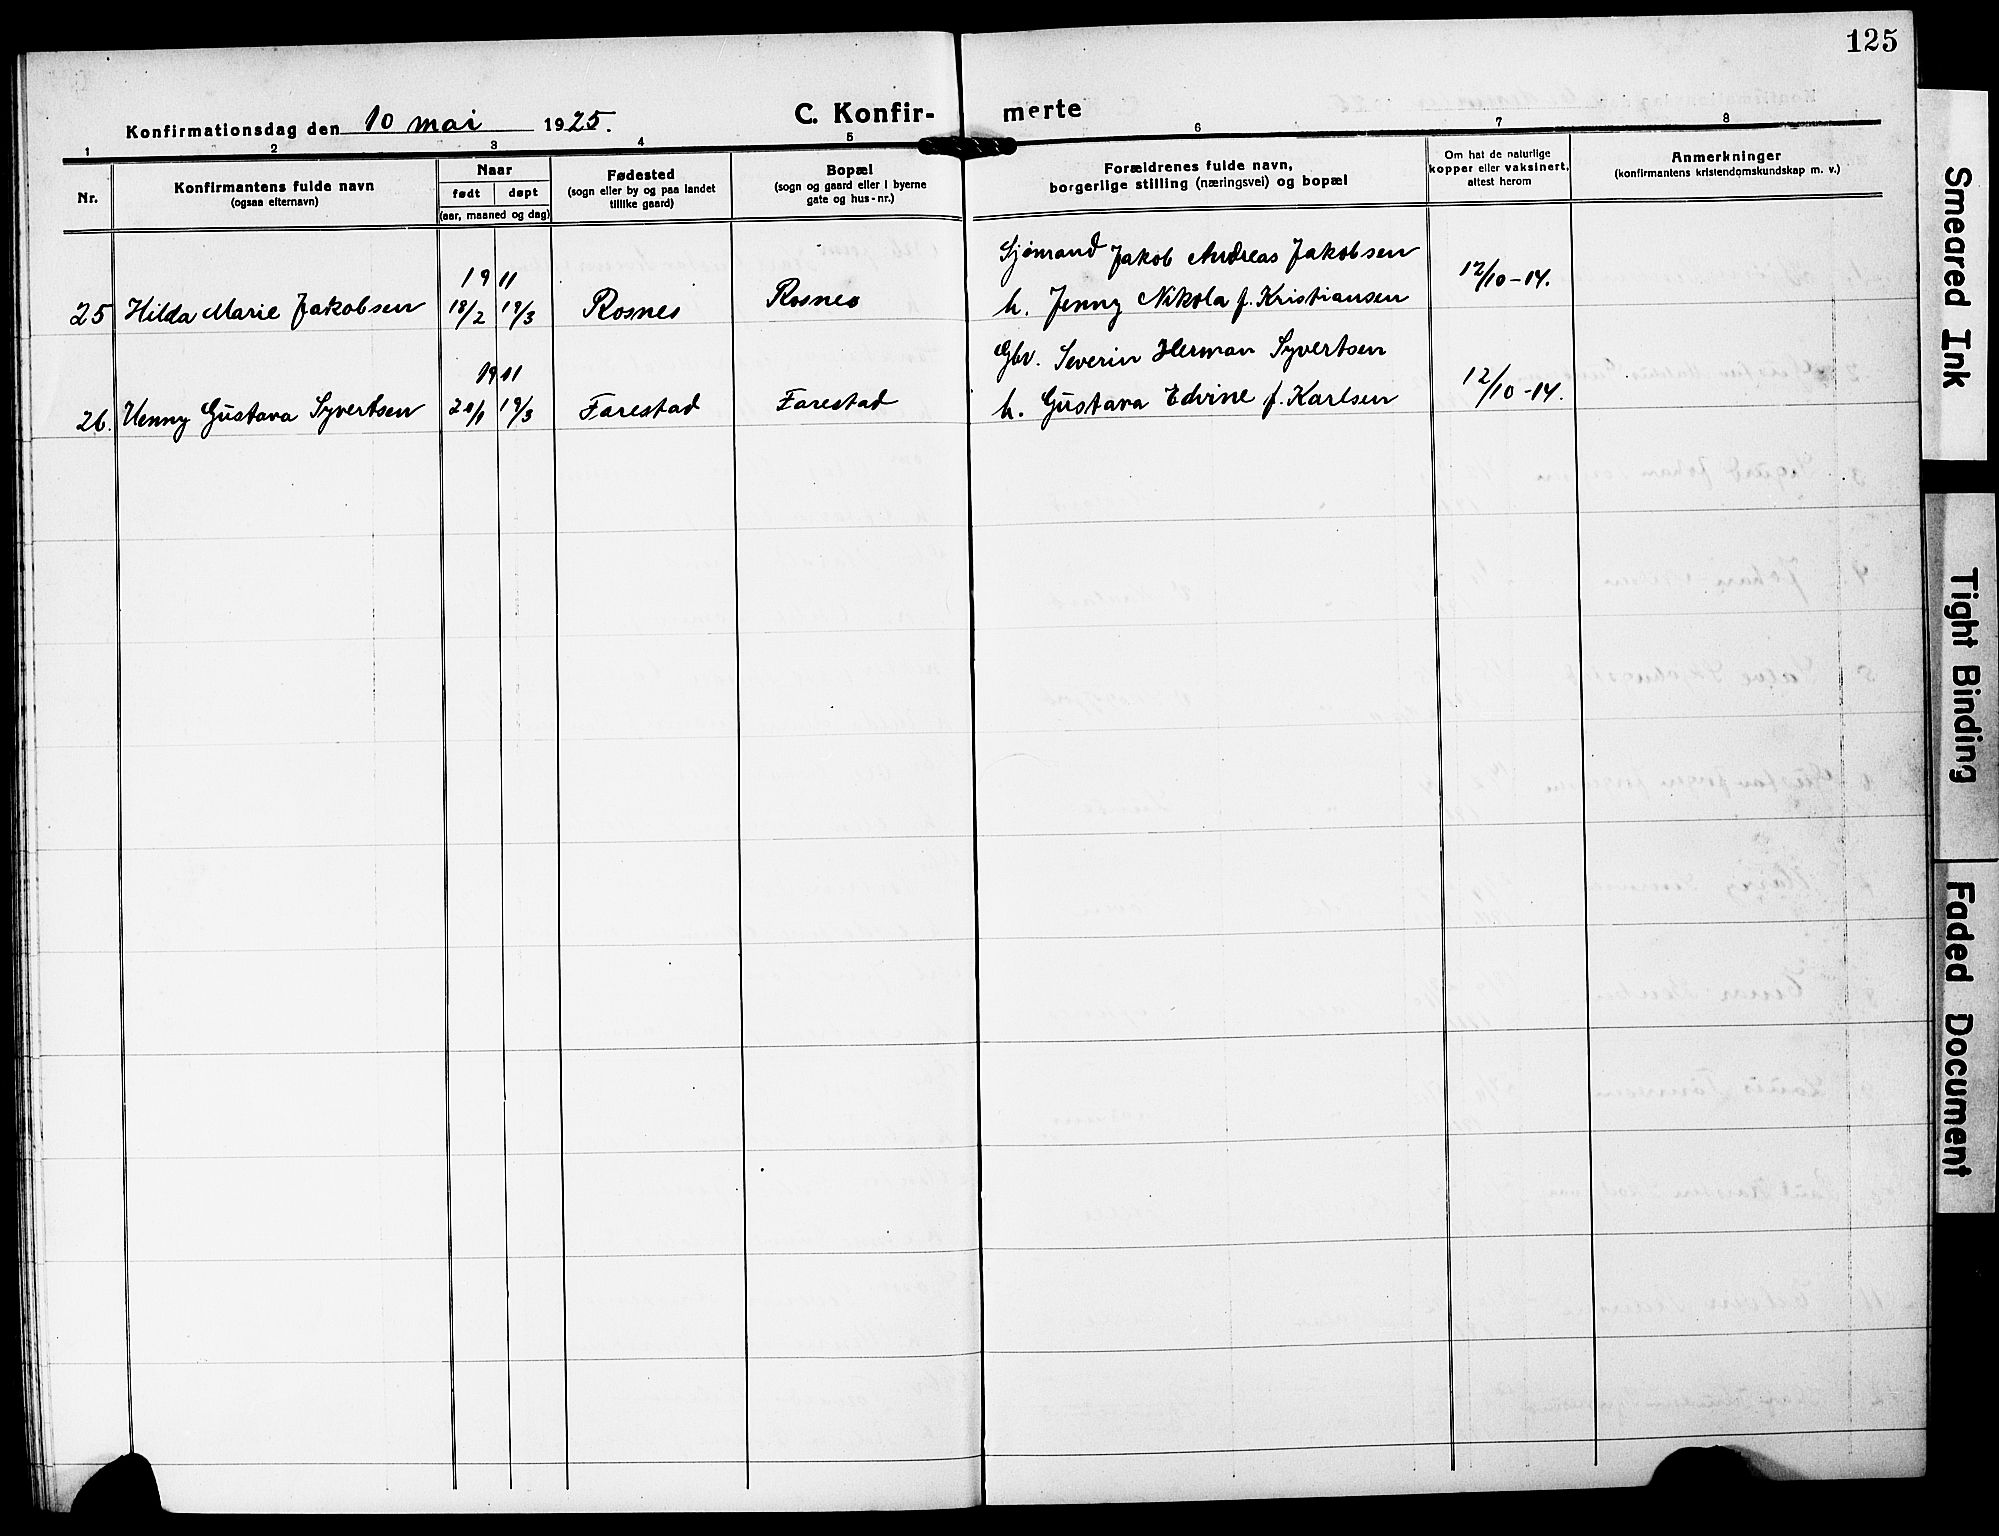 125
Konfirmationsdag den 10 mai 1925.
C. Konfir-merte
1 2 3 4 5 6 7 8
Nr.
Konfirmantens fulde navn
(ogsaa efternavn)
Naar
født døpt
(aar, maaned og dag)
Fødested
(sogn eller by og paa landet
tillike gaard)
Bopæl
(sogn og gaard eller i byerne
gate og hus-nr.)
Forældrenes fulde navn,
borgerlige stilling (næringsvei) og bopæl
Om hat de naturlige
kopper eller vaksinert,
attest herom
Anmerkninger
(konfirmantens kristendomskundskap m. v.)
19 11
Sjømand Jakob Andreas Jakobsen
25 Hilda Marie Jakobsen 18/2 19/3 Rosnes Rosnes h. Jenny Nikola f. Kristiansen 12/10-14.
19 11
Gbr. Severin Herman Syvertsen
26. Henny Gustava Syvertsen 20/1 19/3 Farestad Farestad h. Gustava Edvine f. Karlsen 12/10-14.
Smeared Ink
Tight Binding
Faded Document